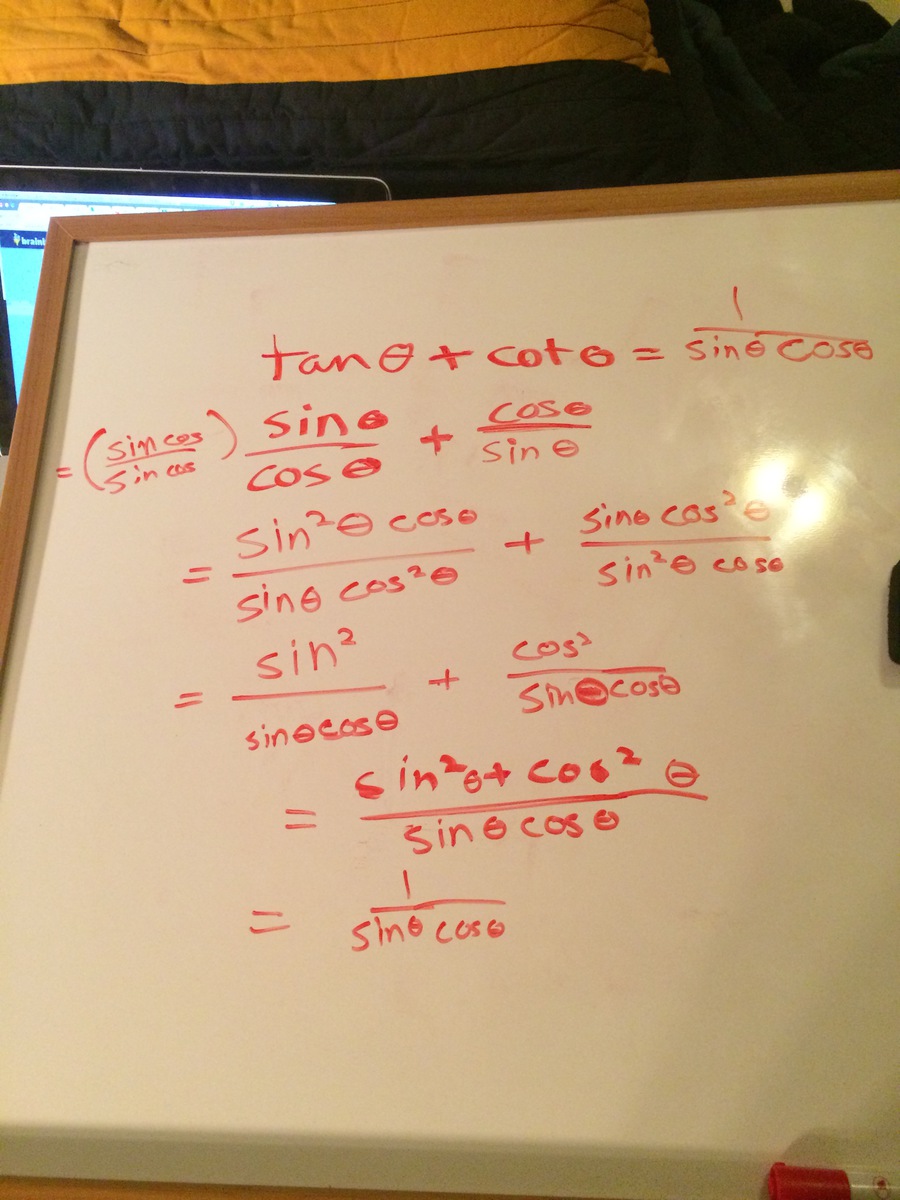 brainl
tanθ + cotθ = 1/(sinθ cosθ)
= (sin cos/sin cos) sinθ/cosθ + cosθ/sinθ
= sin²θ cosθ/(sinθ cos²θ) + sinθ cos²θ/(sin²θ cosθ)
= sin²/(sinθcosθ) + cos²/(sinθcosθ)
= (sin²θ + cos² θ)/(sinθ cosθ)
= 1/(sinθ cosθ)